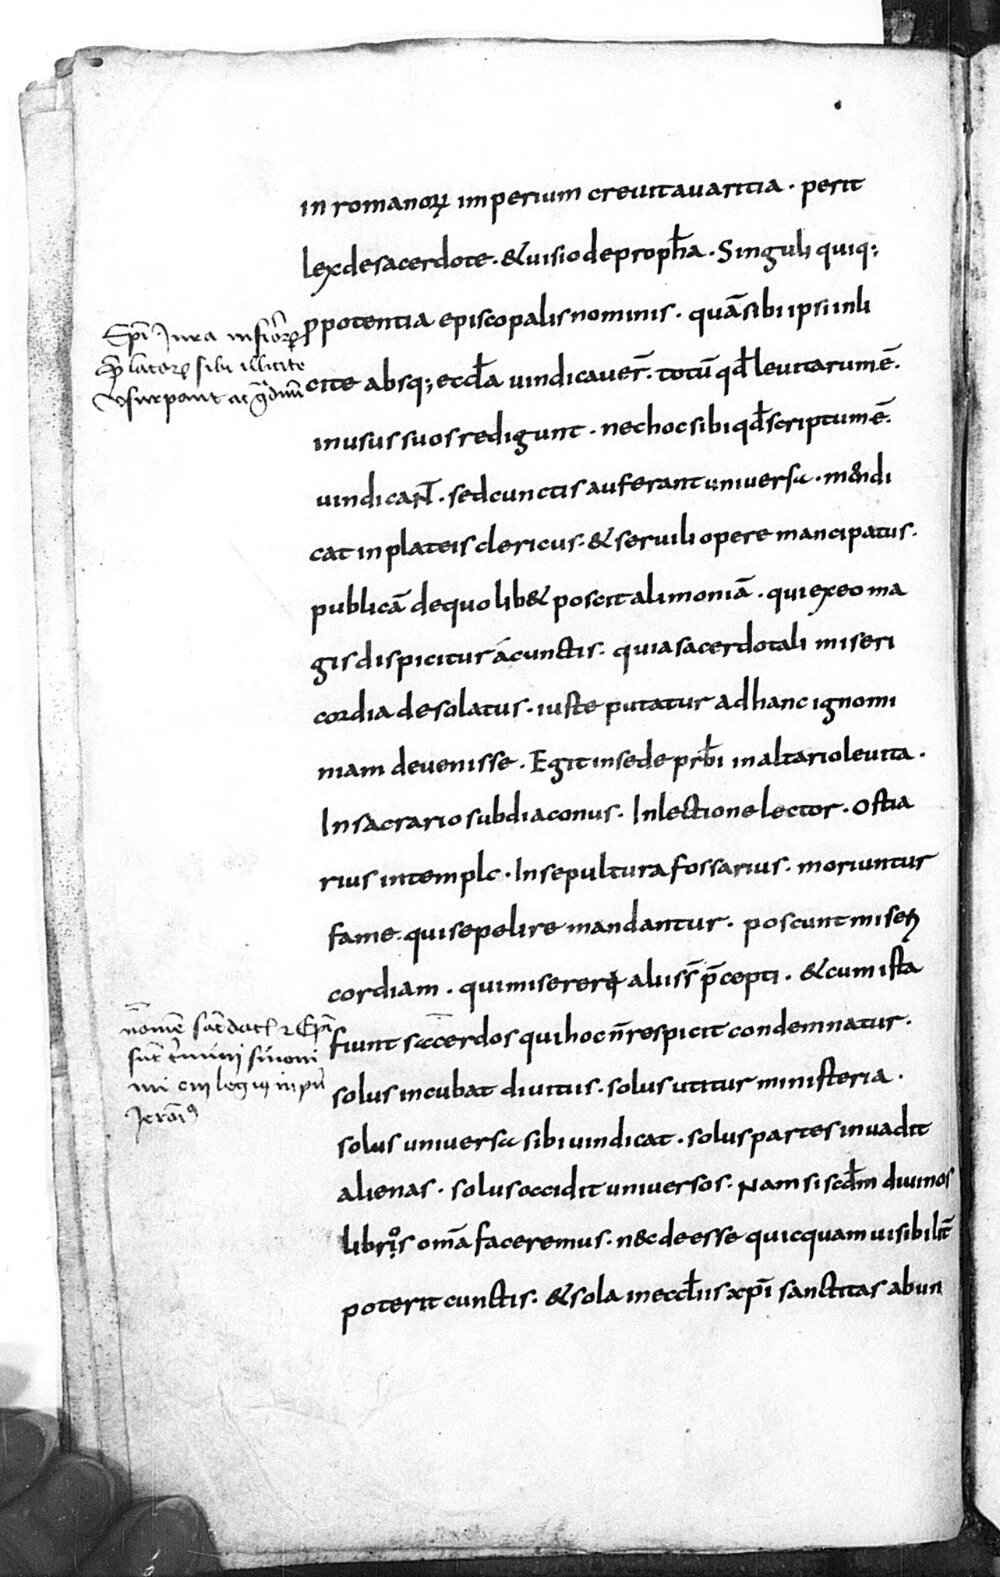 in romanoꝝ imperium crevit avaritia · perit
lex de sacerdote · & visio de proph̄a · Singuli quiq;
ꝓ potentia episcopalis nominis · quā sibi ipsi inli
Ep̄i Jura
sibi illicite
cite absq; eccl̄a vindicaver̄ · totū qđ levitarum ē ·
usurpant ac
in usus suos redigunt · nec hoc sibi qđ scriptum ē ·
vindicaNT̄ · sed cunctis auferant universa · mendi
cat in plateis clericus · & servili opere mancipatus ·
publicā de quolib& poscit alimoniā · qui ex eo ma
gis dispicitur a cunctis · quia sacerdotali miseri
cordia desolatus · iuste putatur ad hanc ignomi
niam devenisse · Egit in sede prb̄i in altario levita ·
In sacrario subdiaconus · In lectione lector · Ostia
rius in templo · In sepultura fossarius · moriuntur
fame · qui sepelire mandantur · poscunt miseri
cordiam · qui misereri aliis s̄ p̄cepti · & cum ista
fiunt sacerdos qui hoc n̄ respicit condemnatur ·
solus incubat divitiis · solus utitur ministeria ·
solus universa sibi vindicat · solus partes invadit
alienas · solus occidit universos · Nam si scd̄m divinos
libros om̄a faceremus · nec deesse quicquam visibilit̄
poterit cunctis · & sola in eccl̄iis xp̄i sanctitas abun